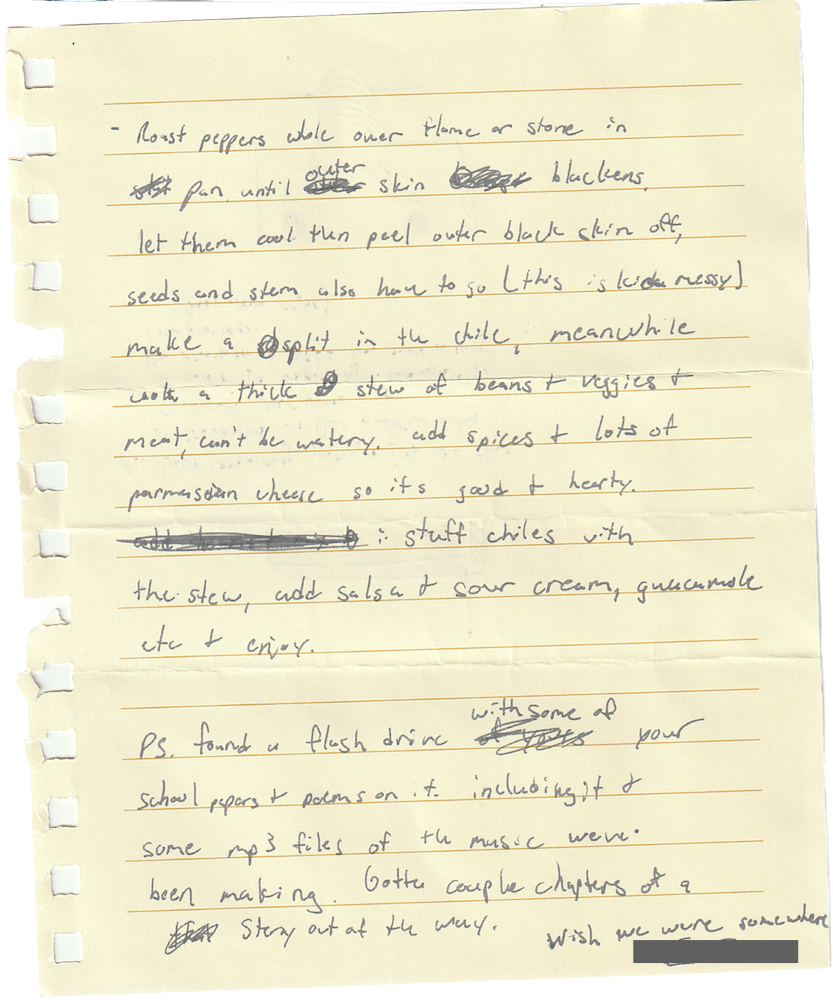 - Roast peppers whole over flame or stone in
pan until outer skin blackens.
let them cool then peel outer black skin off,
seeds and stem also have to go (this is kinda messy)
make a split in the chile, meanwhile
cook a thick stew of beans + veggies +
meat, can't be watery. add spices + lots of
parmesian cheese so it's good + hearty.
stuff chiles with
the stew, add salsa + sour cream, guacamole
etc + enjoy.
PS. found a flash drive with some of your
school papers + poems on it. including it +
some mp3 files of the music weve
been making. Gotta couple chapters of a
Story out of the way.
Wish we were somewhere